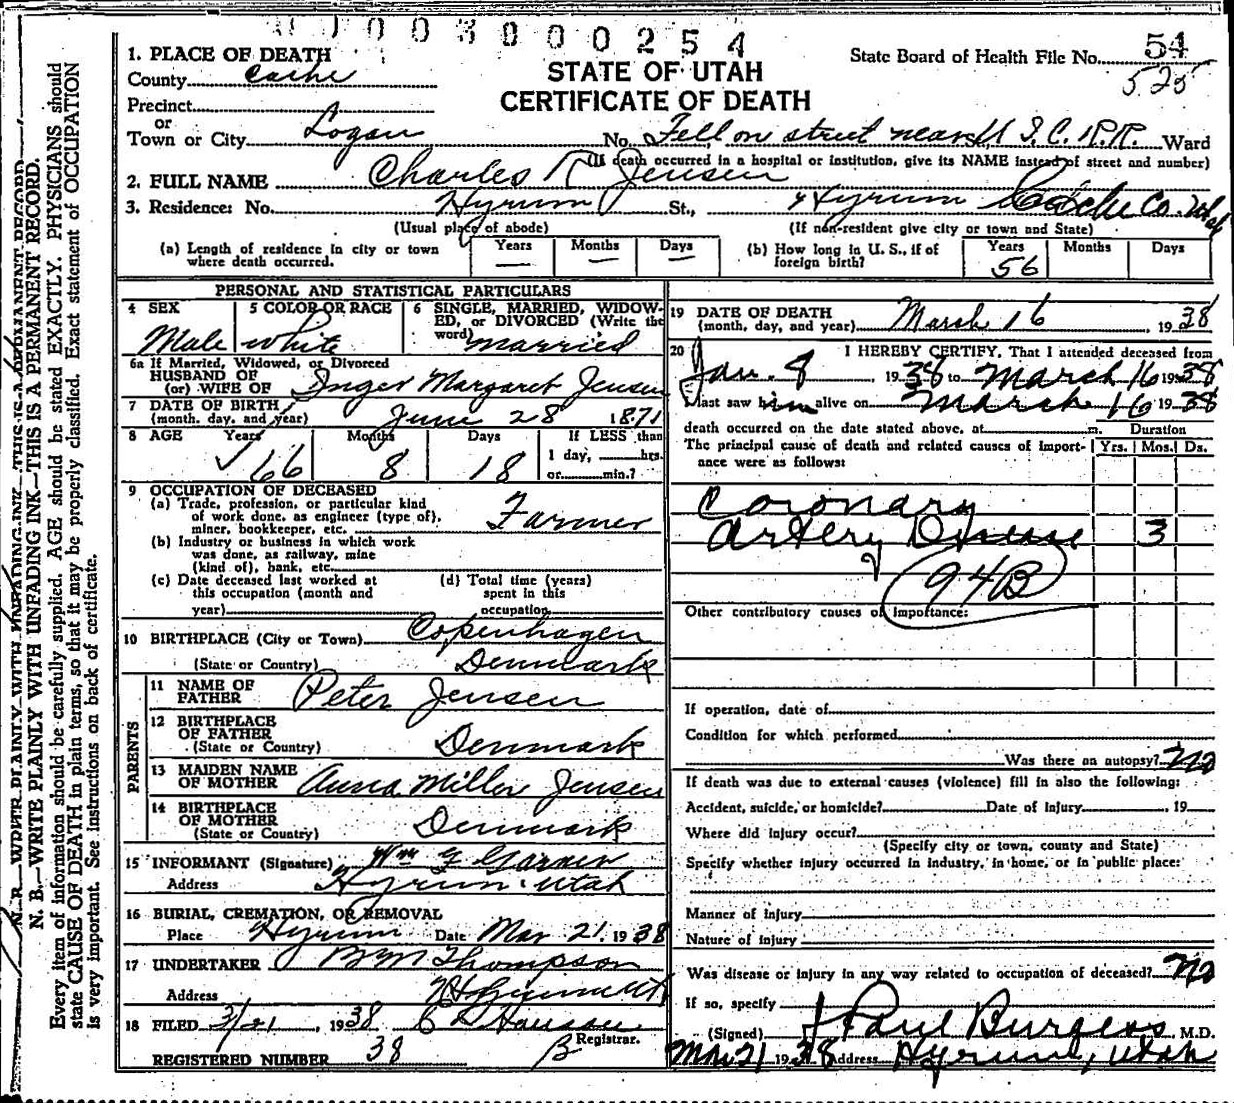 003000254
1. PLACE OF DEATH
County Cache
STATE OF UTAH
State Board of Health File No. 54
525
Precinct
CERTIFICATE OF DEATH
or
Town or City Logan No. Fell on street near U.I.C.R.R. Ward
(If death occurred in a hospital or institution, give its NAME instead of street and number)
2. FULL NAME Charles R Jensen
3. Residence: No. Hyrum St., Hyrum Cache Co. Utah
(Usual place of abode) (If non-resident give city or town and State)
(a) Length of residence in city or town where death occurred. Years — Months — Days —
(b) How long in U. S., if of foreign birth? Years 56 Months Days
PERSONAL AND STATISTICAL PARTICULARS
4 SEX Male
5 COLOR OR RACE white
6 SINGLE, MARRIED, WIDOWED, or DIVORCED (Write the word) married
6a If Married, Widowed, or Divorced
HUSBAND OF
(or) WIFE OF Inger Margaret Jensen
7 DATE OF BIRTH
(month, day, and year) June 28 1871
8 AGE Years 66 Months 8 Days 18 If LESS than 1 day, hrs. or min.?
9 OCCUPATION OF DECEASED
(a) Trade, profession, or particular kind
of work done, as engineer (type of),
miner, bookkeeper, etc. Farmer
(b) Industry or business in which work
was done, as railway, mine
(kind of), bank, etc.
(c) Date deceased last worked at
this occupation (month and
year)
(d) Total time (years)
spent in this
occupation
10 BIRTHPLACE (City or Town) Copenhagen
(State or Country) Denmark
PARENTS
11 NAME OF
FATHER Peter Jensen
12 BIRTHPLACE
OF FATHER
(State or Country) Denmark
13 MAIDEN NAME
OF MOTHER Anna Miller Jensen
14 BIRTHPLACE
OF MOTHER
(State or Country) Denmark
15 INFORMANT (Signature) Wm F Garner
Address Hyrum Utah
16 BURIAL, CREMATION, OR REMOVAL
Place Hyrum Date Mar 21. 1938
17 UNDERTAKER Thompson
Address Hyrum Ut
18 FILED 3/21, 1938 Hansen
Registrar.
REGISTERED NUMBER 38
19 DATE OF DEATH
(month, day, and year) March 16 1938
20 I HEREBY CERTIFY, That I attended deceased from
Jan. 8 1938 to March 16 1938
I last saw him alive on March 16 1938
death occurred on the date stated above, at m.
Duration
The principal cause of death and related causes of importance were as follows:
Yrs. Mos. Ds.
Coronary
Artery Disease 3
94B
Other contributory causes of importance:
If operation, date of
Condition for which performed
Was there an autopsy? no
If death was due to external causes (violence) fill in also the following:
Accident, suicide, or homicide? Date of injury , 19
Where did injury occur?
(Specify city or town, county and State)
Specify whether injury occurred in industry, in home, or in public place:
Manner of injury
Nature of injury
Was disease or injury in any way related to occupation of deceased? no
If so, specify
(Signed) J Paul Burgess M.D.
Mar 21 1938 Address Hyrum, Utah
N. B.—WRITE PLAINLY WITH UNFADING INK—THIS IS A PERMANENT RECORD.
Every item of information should be carefully supplied. AGE should be stated EXACTLY. PHYSICIANS should
state CAUSE OF DEATH in plain terms, so that it may be properly classified. Exact statement of OCCUPATION
is very important. See instructions on back of certificate.